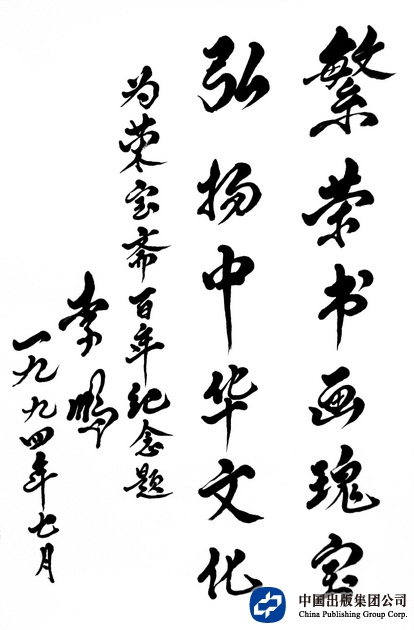 繁荣书画瑰宝
弘扬中华文化
为荣宝斋百年纪念题
李鹏
一九九四年七月
中国出版集团公司
China Publishing Group Corp.